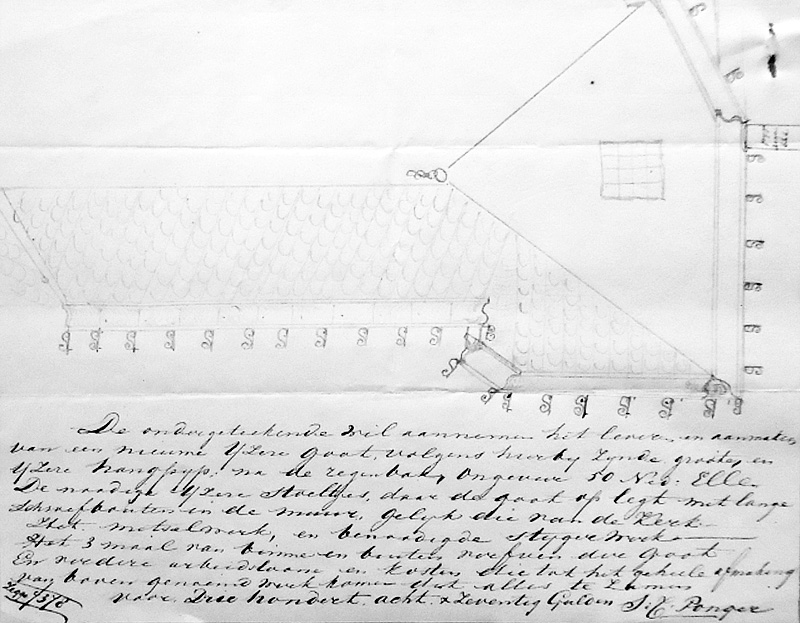 De ondergeteekende wil aannemen het leveren en aanmaken
van een nieuwe Yzere Goot, volgens hierby zynde grootte, en
Yzere hangpyp, na de regenbak, ongeveer 50 Ned: Elle
De noodige Yzere Stoeltjes, daar de goot op legt met lange
schroefbouten in de muur, gelyk die van de Kerk
Het metselwerk, en benoodigde Stygerwerk
Het 3 maal van binnen en buiten verfven dier Goot
En verdere arbeidsloon en kosten die tot het geheele afmaking
van boven genoemd werk komen dit alles te zamen
voor Drie hondert acht & Zeventig Gulden J. C. Ponger